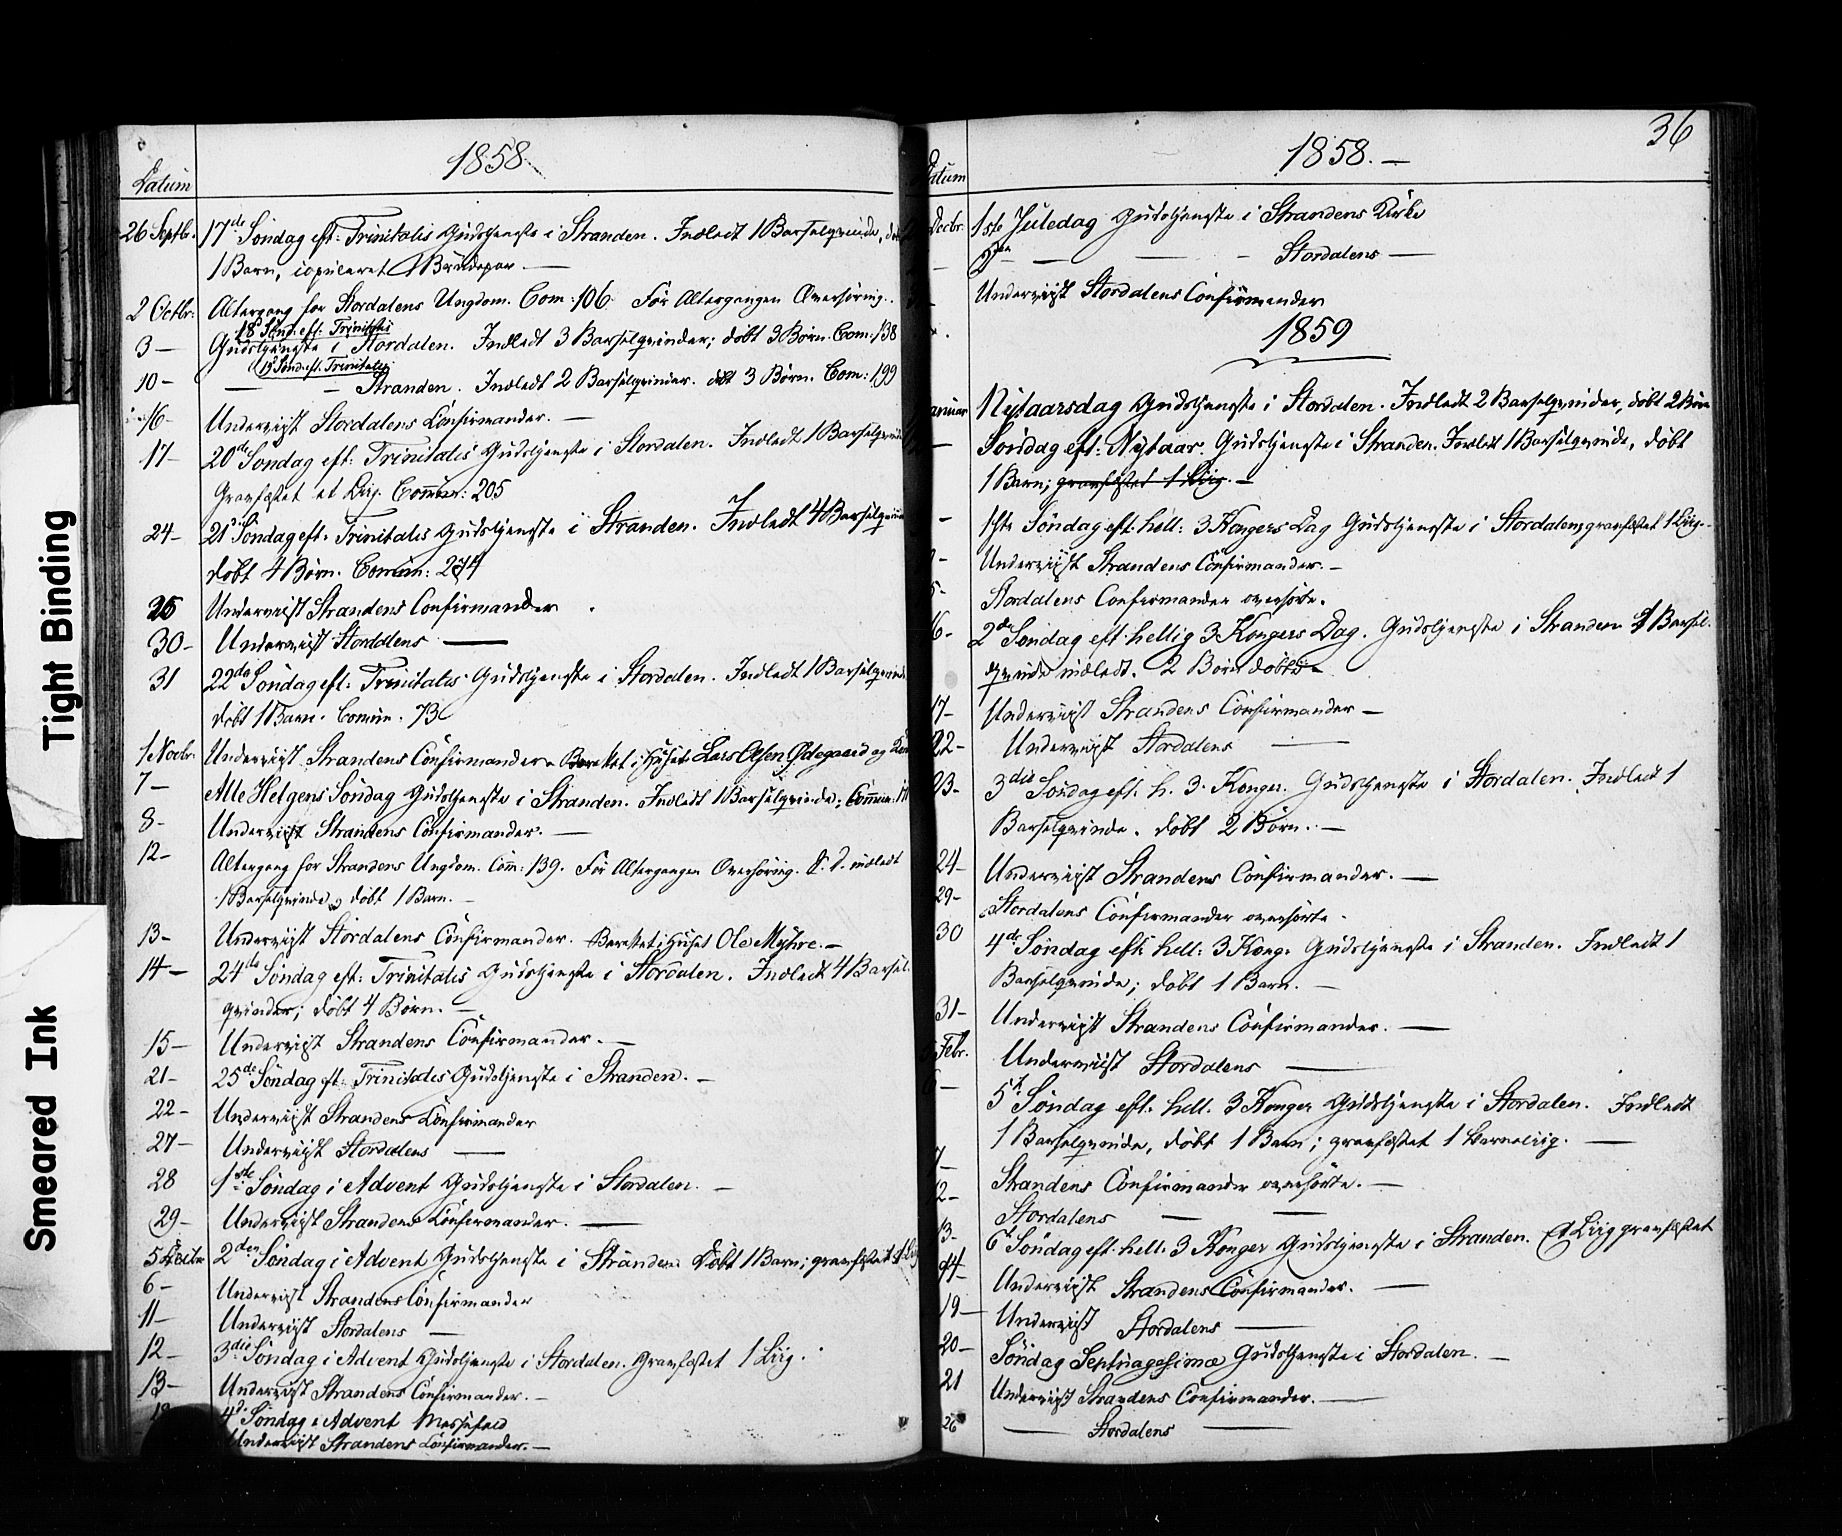 Tight Binding
Smeared Ink
1858.
Datum
26 Septb. 17de Søndag eft: Trinitatis Gudstjeneste i Stranden. Indledt 1 Barselqvinde,
1 Barn, copuleret 1 Brudepar —
2 Octbr: Altergang for Stordalens Ungdom. Com: 106. Før Altergangen Overhøring.
18de Sønd. eft: Trinitatis
3 — Gudstjeneste i Stordalen. Indledt 3 Barselqvinder; døbt 3 Børn. Com: 138
19 Sønd. eft. Trinitatis
10 — — — Stranden. Indledt 2 Barselqvinder. døbt 3 Børn. Com: 199
16 — Underviist Stordalens Confirmander. —
17 — 20de Søndag eft: Trinitatis Gudstjeneste i Stordalen. Indledt 1 Barselqvinde
Gravfæstet et Liig. Commun: 205
24 — 21de Søndag eft: Trinitatis Gudstjeneste i Stranden. Indledt 4 Barselqvinder
døbt 4 Børn. Commun: 274
25 Underviist Strandens Confirmander.
30 — Underviist Stordalens —
31 22de Søndag eft: Trinitatis Gudstjeneste i Stordalen. Indledt 1 Barselqvinde
døbt 1 Barn. Commun. 73
1 Novbr. Underviist Strandens Confirmander. Berettet i Huset Lars Olsen Ødegaard og
7 — Alle Helgens Søndag Gudstjeneste i Stranden. Indledt 1 Barselqvinde; Commun:
8 — Underviist Strandens Confirmander. —
12 — Altergang for Strandens Ungdom. Comm: 139. Før Altergangen Overhøring. S. D. indledt
1 Barselqvinde, døbt 1 Barn. —
13 — Underviist Stordalens Confirmander. Berettet i Huset Ole Myhre. —
14 — 24de Søndag eft: Trinitatis Gudstjeneste i Stordalen. Indledt 4 Barsel-
qvinder; døbt 4 Børn. —
15 — Underviist Strandens Confirmander. —
21 — 25de Søndag eft: Trinitatis Gudstjeneste i Stranden. —
22 — Underviist Strandens Confirmander
27 — Underviist Stordalens —
28 1ste Søndag i Advent Gudstjeneste i Stordalen. —
29 — Underviist Strandens Confirmander. —
5 Decbr 2den Søndag i Advent Gudstjeneste i Stranden. Døbt 1 Barn; gravfæstet 1 Liig
6 — Underviist Strandens Confirmander
11 — Underviist Stordalens —
12 — 3die Søndag i Advent Gudstjeneste i Stordalen. Gravfæstet 1 Liig.
13 — Underviist Strandens Confirmander. —
4de Søndag i Advent Messefald
Underviist Strandens Confirmander. —
36
1858. —
Datum
Decbr. 1ste Juledag Gudstjeneste i Strandens Kirke
— 2den — — — Stordalens —
Underviist Stordalens Confirmander
1859
Januar Nytaarsdag Gudstjeneste i Stordalen. Indledt 2 Barselqvinder, døbt 2 Børn
— Søndag eft: Nytaar. Gudstjeneste i Stranden. Indledt 1 Barselqvinde, døbt
1 Barn; gravfæstet 1 Liig. —
— 1ste Søndag eft. hell: 3 Kongers Dag Gudstjeneste i Stordalen gravfæstet 1 Liig. —
— Underviist Strandens Confirmander. —
5 — Stordalens Confirmander overhørte.
16 — 2den Søndag eft: hellig 3 Kongers Dag. Gudstjeneste i Stranden 1 Barsel-
qvinde indledt. 2 Børn døbte —
17 — Underviist Strandens Confirmander —
22 — Underviist Stordalens —
23 — 3die Søndag eft. h. 3 Konger. Gudstjeneste i Stordalen. Indledt 1
Barselqvinde. døbt 2 Børn. —
24 — Underviist Strandens Confirmander. —
29 — Stordalens Confirmander overhørte.
30 4de Søndag eft: hell: 3 Konge. Gudstjeneste i Stranden. Indledt 1
Barselqvinde; døbt 1 Barn. —
31 — Underviist Strandens Confirmander. —
5 Febr. Underviist Stordalens —
6 — 5te Søndag eft. hell. 3 Konger Gudstjeneste i Stordalen. Indledt
1 Barselqvinde, døbt 1 Barn; gravfæstet 1 Barneliig. —
7 — Strandens Confirmander overhørte. —
12 — Stordalens — —
13 — 6te Søndag eft. hell: 3 Konger Gudstjeneste i Stranden. Et Liig gravfæstet
14 — Underviist Strandens Confirmander. —
19 — Underviist Stordalens —
20 — Søndag Septuagesimæ Gudstjeneste i Stordalen. —
21 Underviist Strandens Confirmander. —
26 — Stordalens —